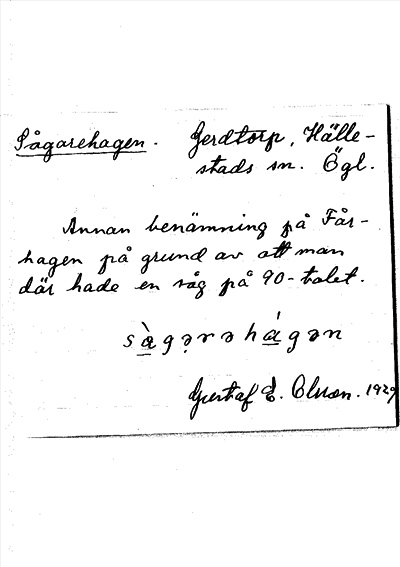 Sågarehagen. Gerdtorp, Hälle-
stads sn. Ögl.
Annan benämning på Får-
hagen på grund av att man
där hade en såg på 90-talet.
sàgərəhágən
Gustaf E. Olsson. 1929